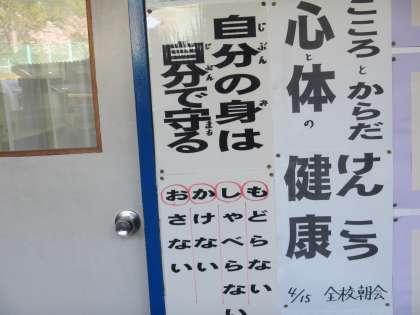 こころとからだ
けんこう
心と体の
健康
4/15 全校朝会
自分の身は
じぶん み
自分で守る
じぶん まも
もどらない
しゃべらない
かけない
おさない